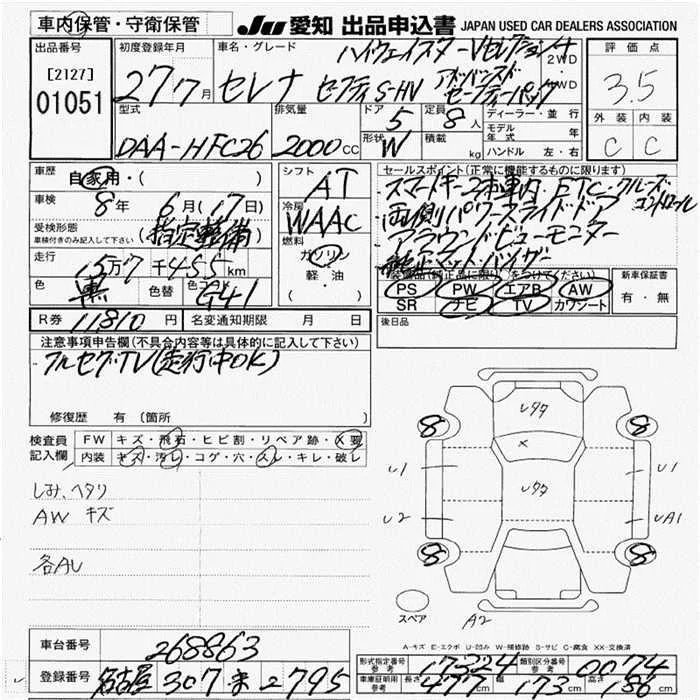 車内保管・守衛保管
JU 愛知 出品申込書 JAPAN USED CAR DEALERS ASSOCIATION
出品番号
[2127]
01051
初度登録年月
27 7月
車名・グレード
ハイウェイスターVセレクション+
セレナ セーフティS-HV アドバンスド
セーフティパック
2WD
4WD
評価点
3.5
外装 内装
C C
型式
DAA-HFC26
排気量
2000 CC
ドア 5
形状 W
定員 8 人
積載 kg
ディーラー・並行
モデル年式 年
ハンドル 左・右
車歴
自家用・( )
車検
8年 6月(17日)
受検形態
車検付きのみ記入して下さい
(指定整備)
走行
15万7千455km
色 黒 色替 色コード G41
シフト
AT
冷房
WAAC
燃料
ガソリン
軽・油
( )
セールスポイント(正常に機能するものに限ります)
スマートキー2ヶ車内 ETC・クルーズコントロール
両側パワースライドドア
アラウンドビューモニター
純正マットバイザー
装備品(純正品に限り)をつけてください)
PS PW エアB AW
SR ナビ TV カワシート
新車保証書
有・無
R券 11810 円 名変通知期限 月 日
後日品
注意事項申告欄(不具合内容等は具体的に記入して下さい)
フルセグTV(走行中OK)
修復歴 有(箇所 )
検査員記入欄
FW キズ・飛石・ヒビ割・リペア跡・X要
内装 キズ・汚レ・コゲ・穴・スレ・キレ・破レ
しみ、ヘタリ
AW キズ
各AU
8 8
レタタ
×
レタタ
U1 U1
U2 UA1
8 8
スペア
A2
A-キズ E-エクボ U-凹み W-補修跡 S-サビ C-腐食 XX-交換済
車台番号 268863
登録番号 名古屋 307 ま 2795
形式指定番号 参考 17324 類別区分番号 参考 0074
車庫証明用 参考 長さ 477cm 幅 173cm 高さ 186cm